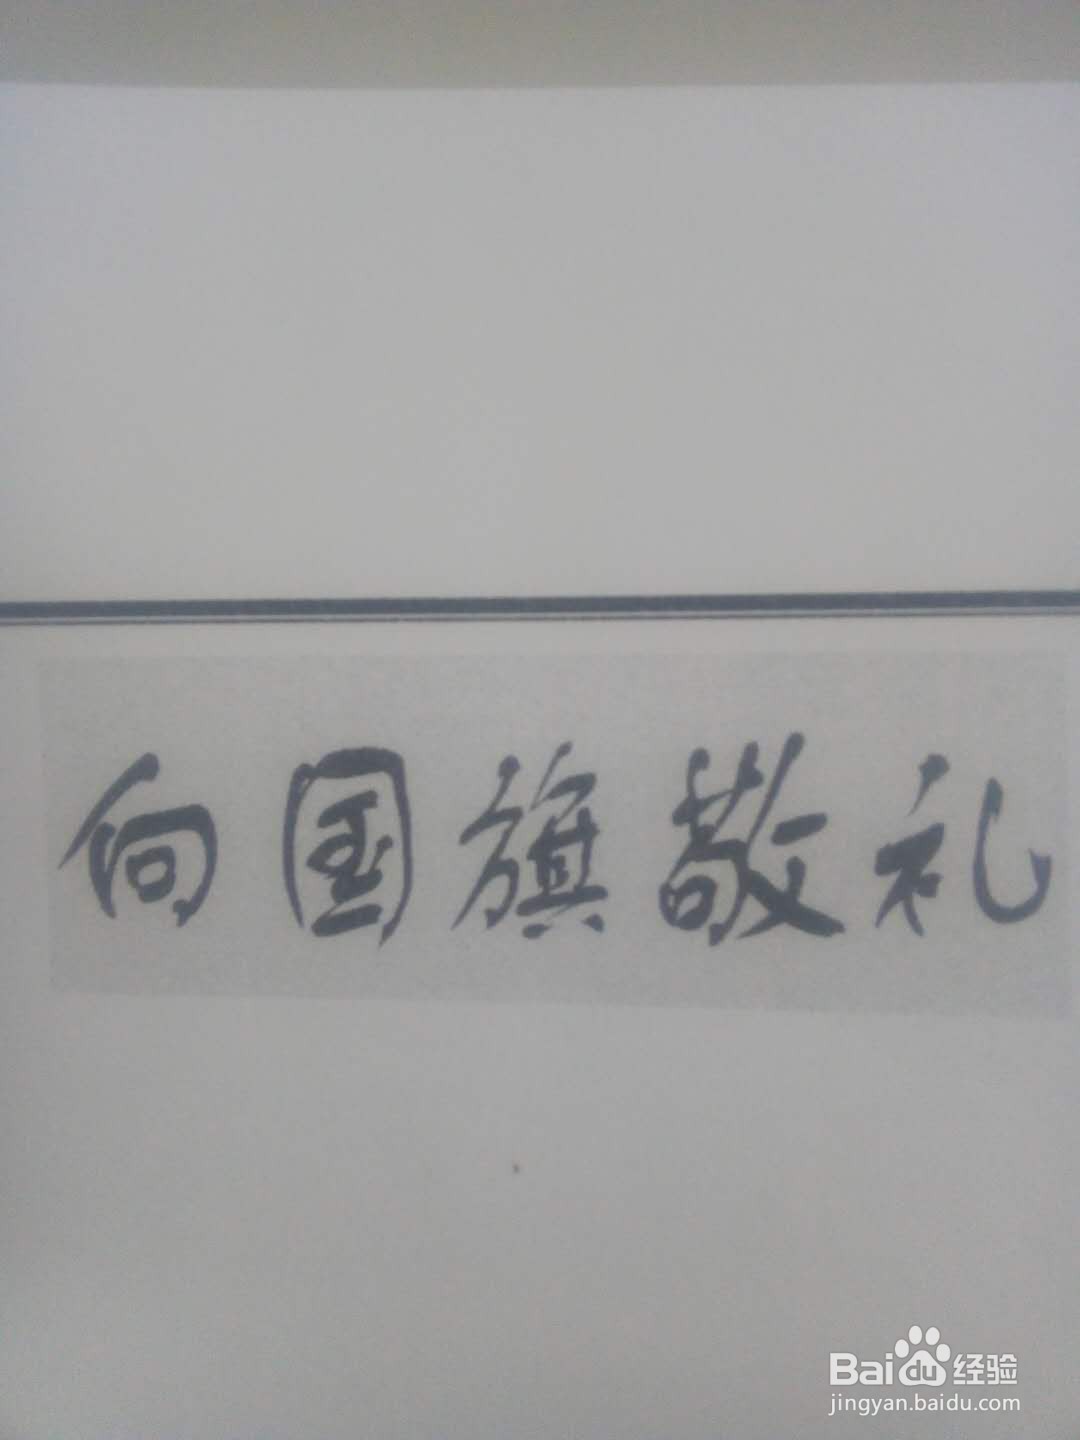 向国旗敬礼
Baidu经验
jingyan.baidu.com